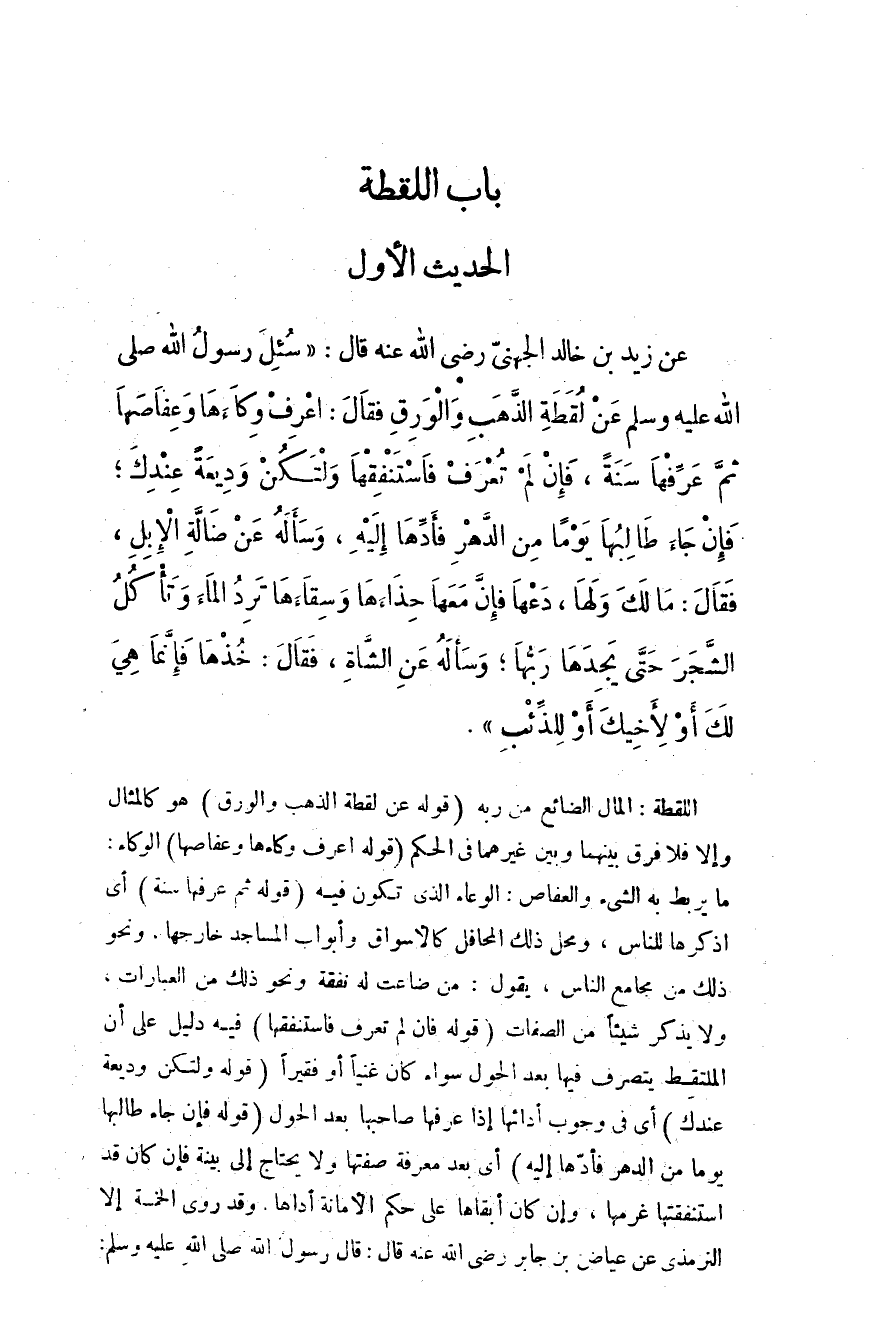 باب اللقطة
الحديث الأول
عن زيد بن خالد الجهنىّ رضى الله عنه قال : « سُئِلَ رسولُ الله صلى
الله عليه وسلم عَنْ لُقَطَةِ الذَّهَبِ وَالْوَرِقِ فقَالَ : اعْرِفْ وِكَاءَهَا وَعِفَاصَهَا
ثمَّ عَرِّفْهَا سَنَةً ، فَإِنْ لَمْ تُعْرَفْ فَاسْتَنْفِقْهَا وَلْتَكُنْ وَدِيعَةً عِنْدِكَ ؛
فَإِنْ جَاءَ طَالِبُهَا يَوْمًا مِن الدَّهْرِ فَأَدِّهَا إِلَيْهِ ، وَسَأَلَهُ عَنْ ضَالَّةِ الْإِبِلِ ،
فَقَالَ : مَا لَكَ وَلَهَا ، دَعْهَا فإِنَّ مَعَهَا حِذَاءَهَا وَسِقاءَهَا تَرِدُ المَاءَ وَتَأْكُلُ
الشَّجَرَ حَتَّى يَجِدَهَا رَبُّهَا ؛ وَسَأَلَهُ عَنِ الشَّاةِ ، فَقَالَ : خُذْهَا فَإِنَّمَا هِيَ
لَكَ أَوْ لِأَخِيكَ أَوْ لِلذِّئْبِ » .
اللقطة : المال الضائع من ربه ( قوله عن لقطة الذهب والورق ) هو كالمثال
وإلا فلا فرق بينهما وبين غيرهما فى الحكم (قوله اعرف وكاءها وعفاصها) الوكاء :
ما يربط به الشىء والعفاص : الوعاء الذى تكون فيه ( قوله ثم عرفها سنة ) أى
اذكرها للناس ، ومحل ذلك المحافل كالأسواق وأبواب المساجد خارجها . ونحو
ذلك من مجامع الناس ، يقول : من ضاعت له نفقة ونحو ذلك من العبارات ،
ولا يذكر شيئاً من الصفات ( قوله فان لم تعرف فاستنفقها ) فيه دليل على أن
الملتقط يتصرف فيها بعد الحول سواء كان غنياً أو فقيراً ( قوله ولتكن وديعة
عندك ) أى فى وجوب أدائها إذا عرفها صاحبها بعد الحول ( قوله فإن جاء طالبها
يوما من الدهر فأدّها إليه ) أى بعد معرفة صفتها ولا يحتاج إلى بينة فإن كان قد
استنفقتها غرمها ، وإن كان أبقاها على حكم الأمانة أداها . وقد روى الخمسة إلا
الترمذى عن عياض بن جابر رضى الله عنه قال : قال رسول الله صلى الله عليه وسلم: